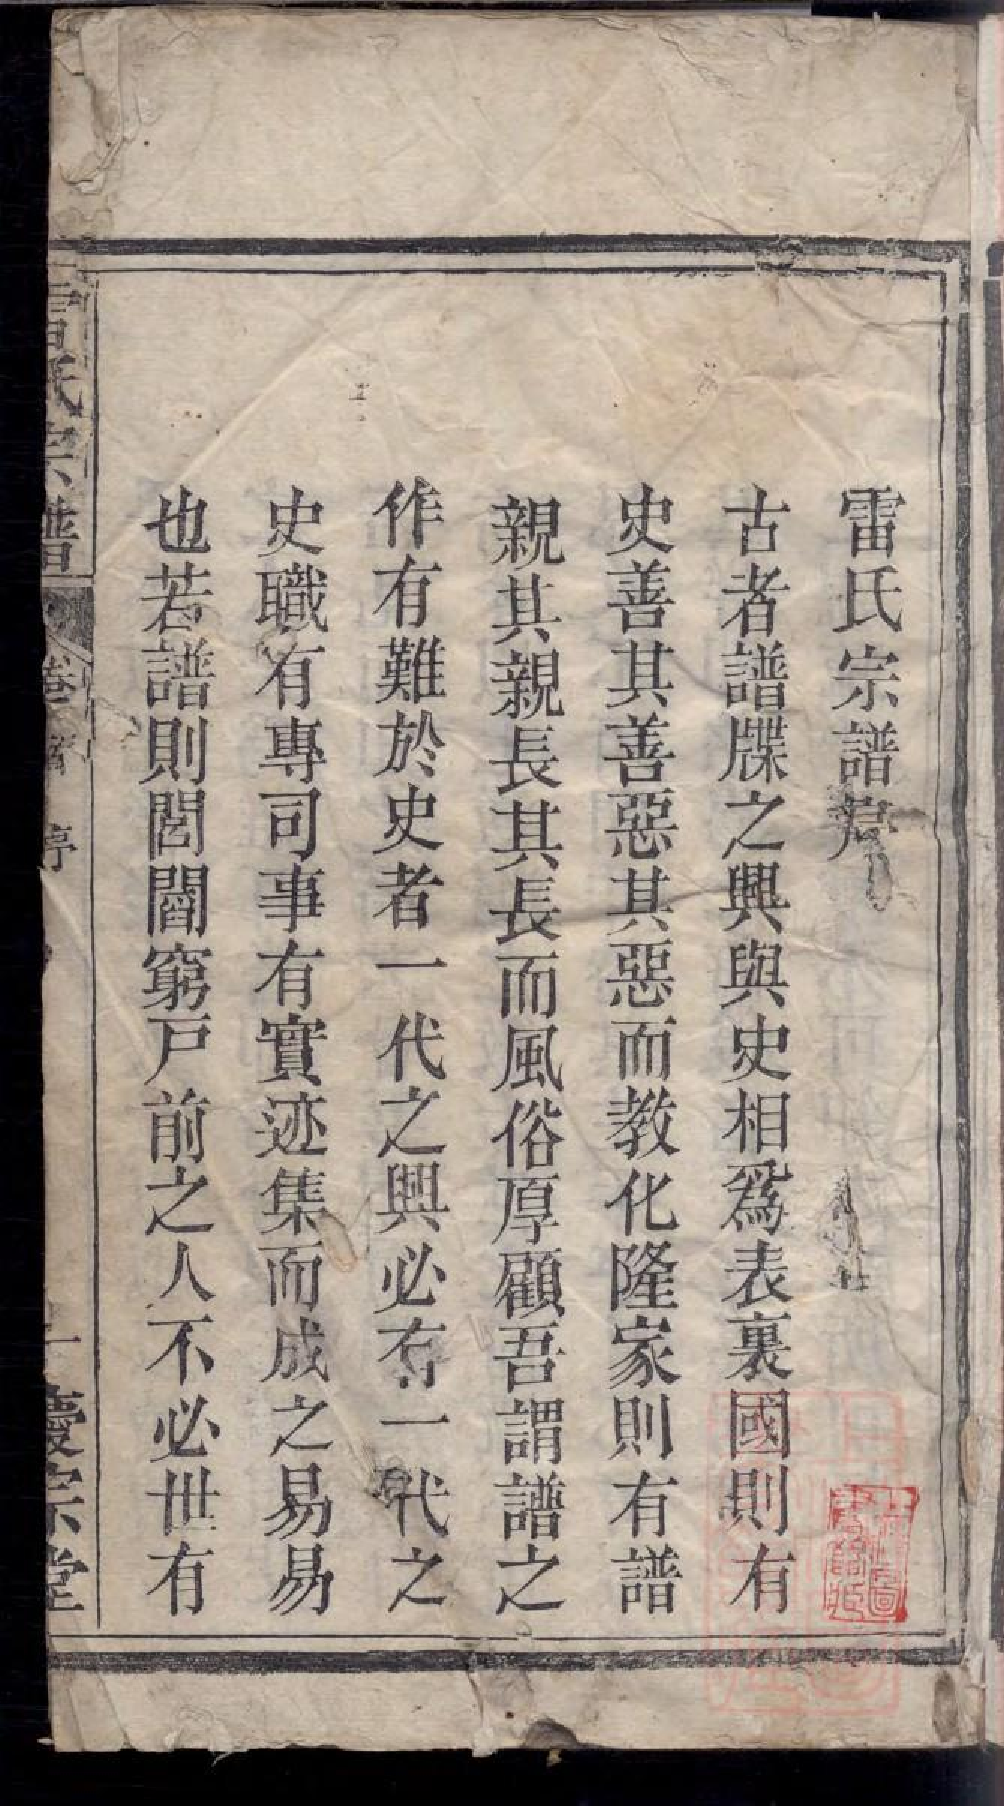 雷氏宗譜序
古者譜牒之興與史相爲表裏國則有
史善其善惡其惡而教化隆家則有譜
親其親長其長而風俗厚顧吾謂譜之
作有難於史者一代之興必有一代之
史職有專司事有實迹集而成之易易
也若譜則閭閻窮戶前之人不必世有
雷氏宗譜
卷首
序
一
慶宗堂